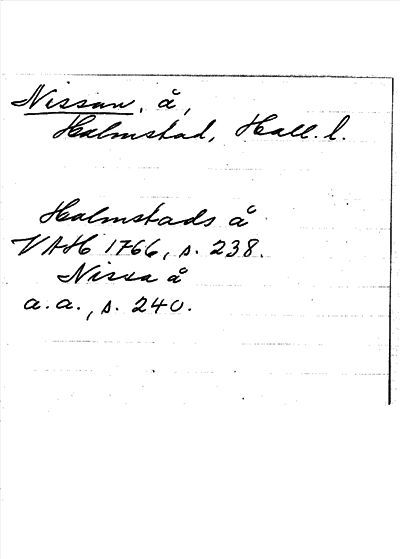 Nissan, å,
Halmstad, Hall. l.
Halmstads å
VAH 1766, s. 238.
Nissa å
a. a., s. 240.